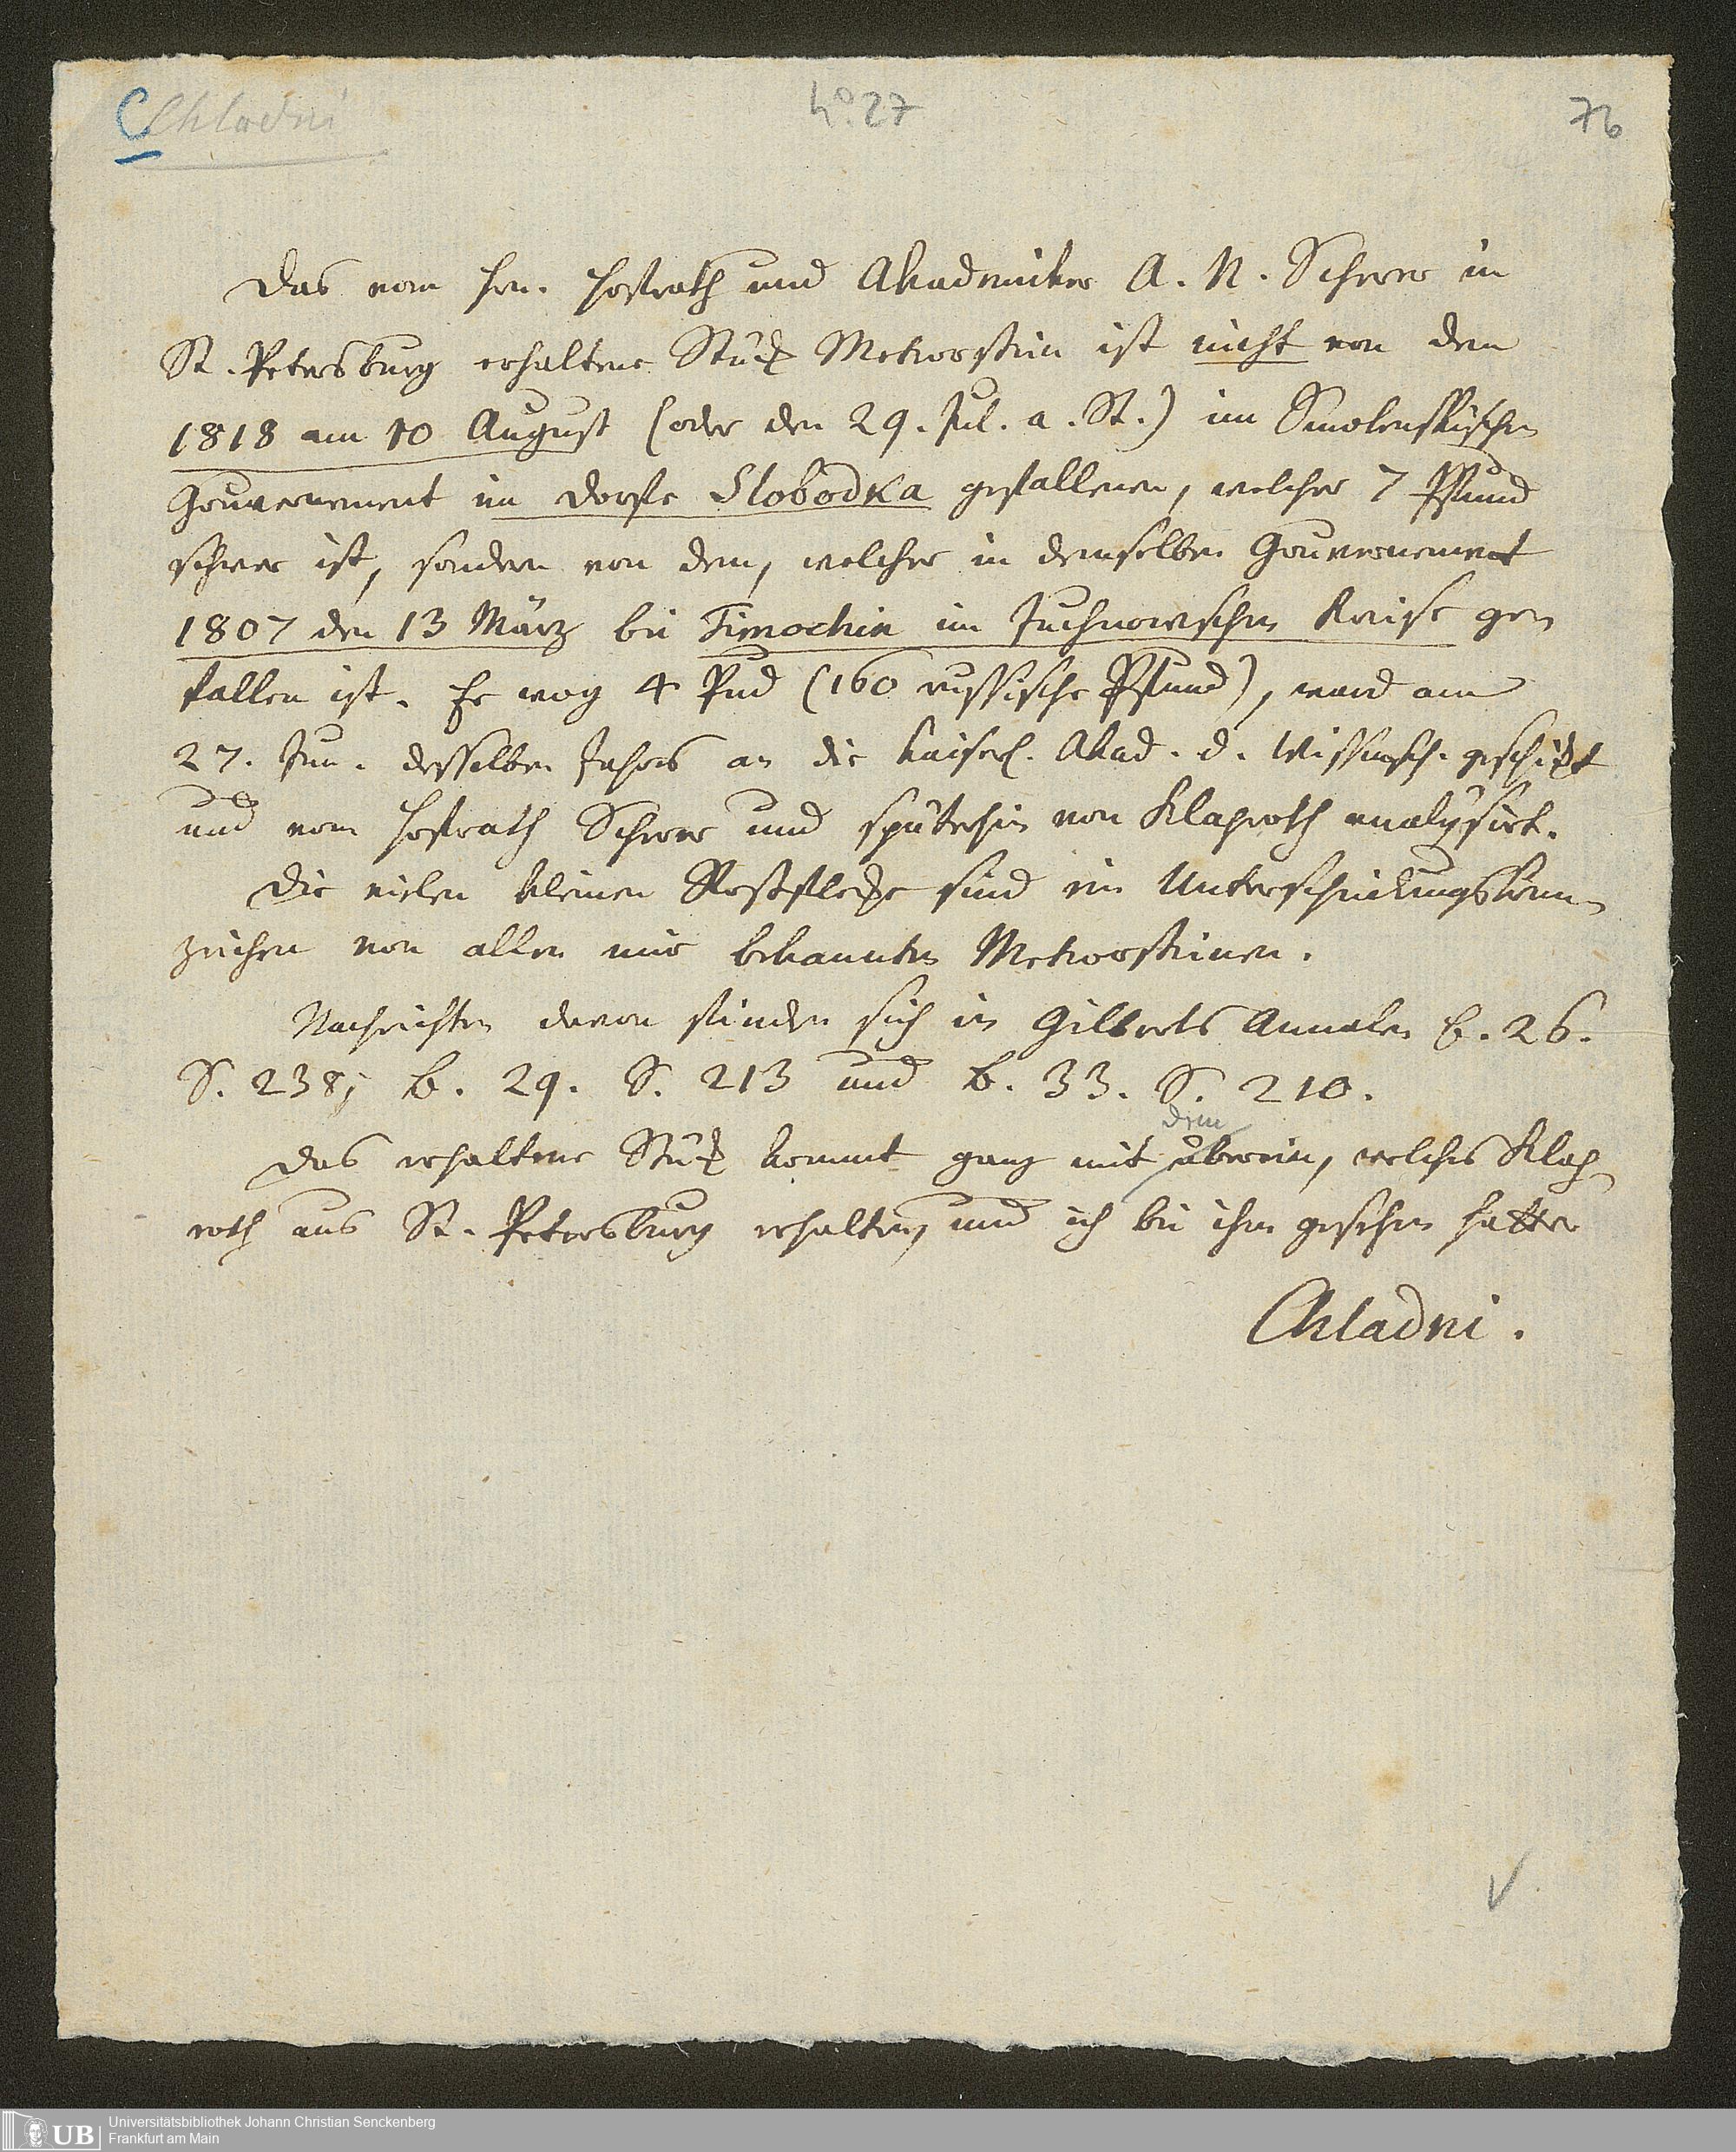 Chladni
No. 27
76
Das vom Hrn. Hofrath und Akademiker A. N. Scherer in
St. Petersburg erhaltene Stück Meteorstein ist nicht von dem
1818 am 10 August (oder den 29. Jul. a. St.) im Smolenskischen
Gouvernement im Dorfe Slobodka gefallenen, welcher 7 Pfund
schwer ist, sondern von dem, welcher in demselben Gouvernement
1807 den 13 März bei Timochin im Juchnowschen Kreise ge-
fallen ist. Er wog 4 Pud (160 russische Pfund), ward am
27. Jun. desselben Jahres an die Kaiserl. Akad. d. Wissensch. geschickt
und vom Hofrath Scherer und späterhin von Klaproth analysirt.
Die vielen kleinen Rostflecke sind ein Unterscheidungskenn-
zeichen von allen mir bekannten Meteorsteinen.
Nachrichten davon finden sich in Gilberts Annalen B. 26.
S. 238; B. 29. S. 213 und B. 33. S. 210.
dem
Das erhaltene Stück kommt ganz mit überein, welches Klap-
roth aus St. Petersburg erhalten, und ich bei ihm gesehen hatte
Chladni.
Universitätsbibliothek Johann Christian Senckenberg
Frankfurt am Main
UB